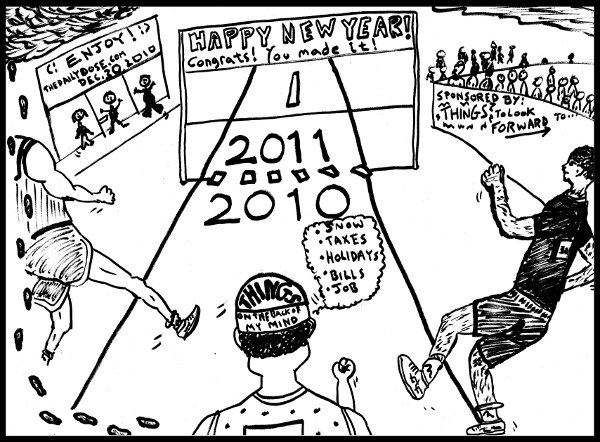 HAPPY NEW YEAR!
Congrats! You made it!
<! ENJOY! !>
THEDAILYDOSE.COM
DEC. 30, 2010
SPONSORED BY:
"THINGS" TO LOOK
FORWARD TO...
1
2011
2010
• SNOW
• TAXES
• HOLIDAYS
• BILLS
• JOB
THINGS
ON THE BACK OF
MY MIND